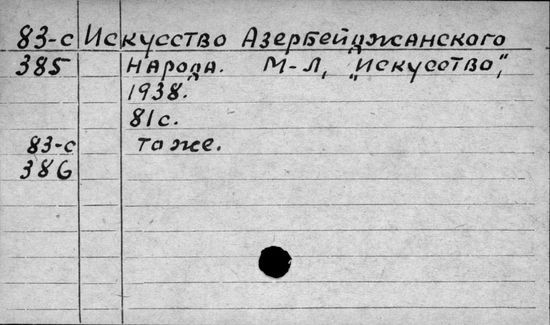 83-с Искусство Азербейджанского
385 народа. М-Л, "Искусство",
1938.
81 с.
83-с то же.
386